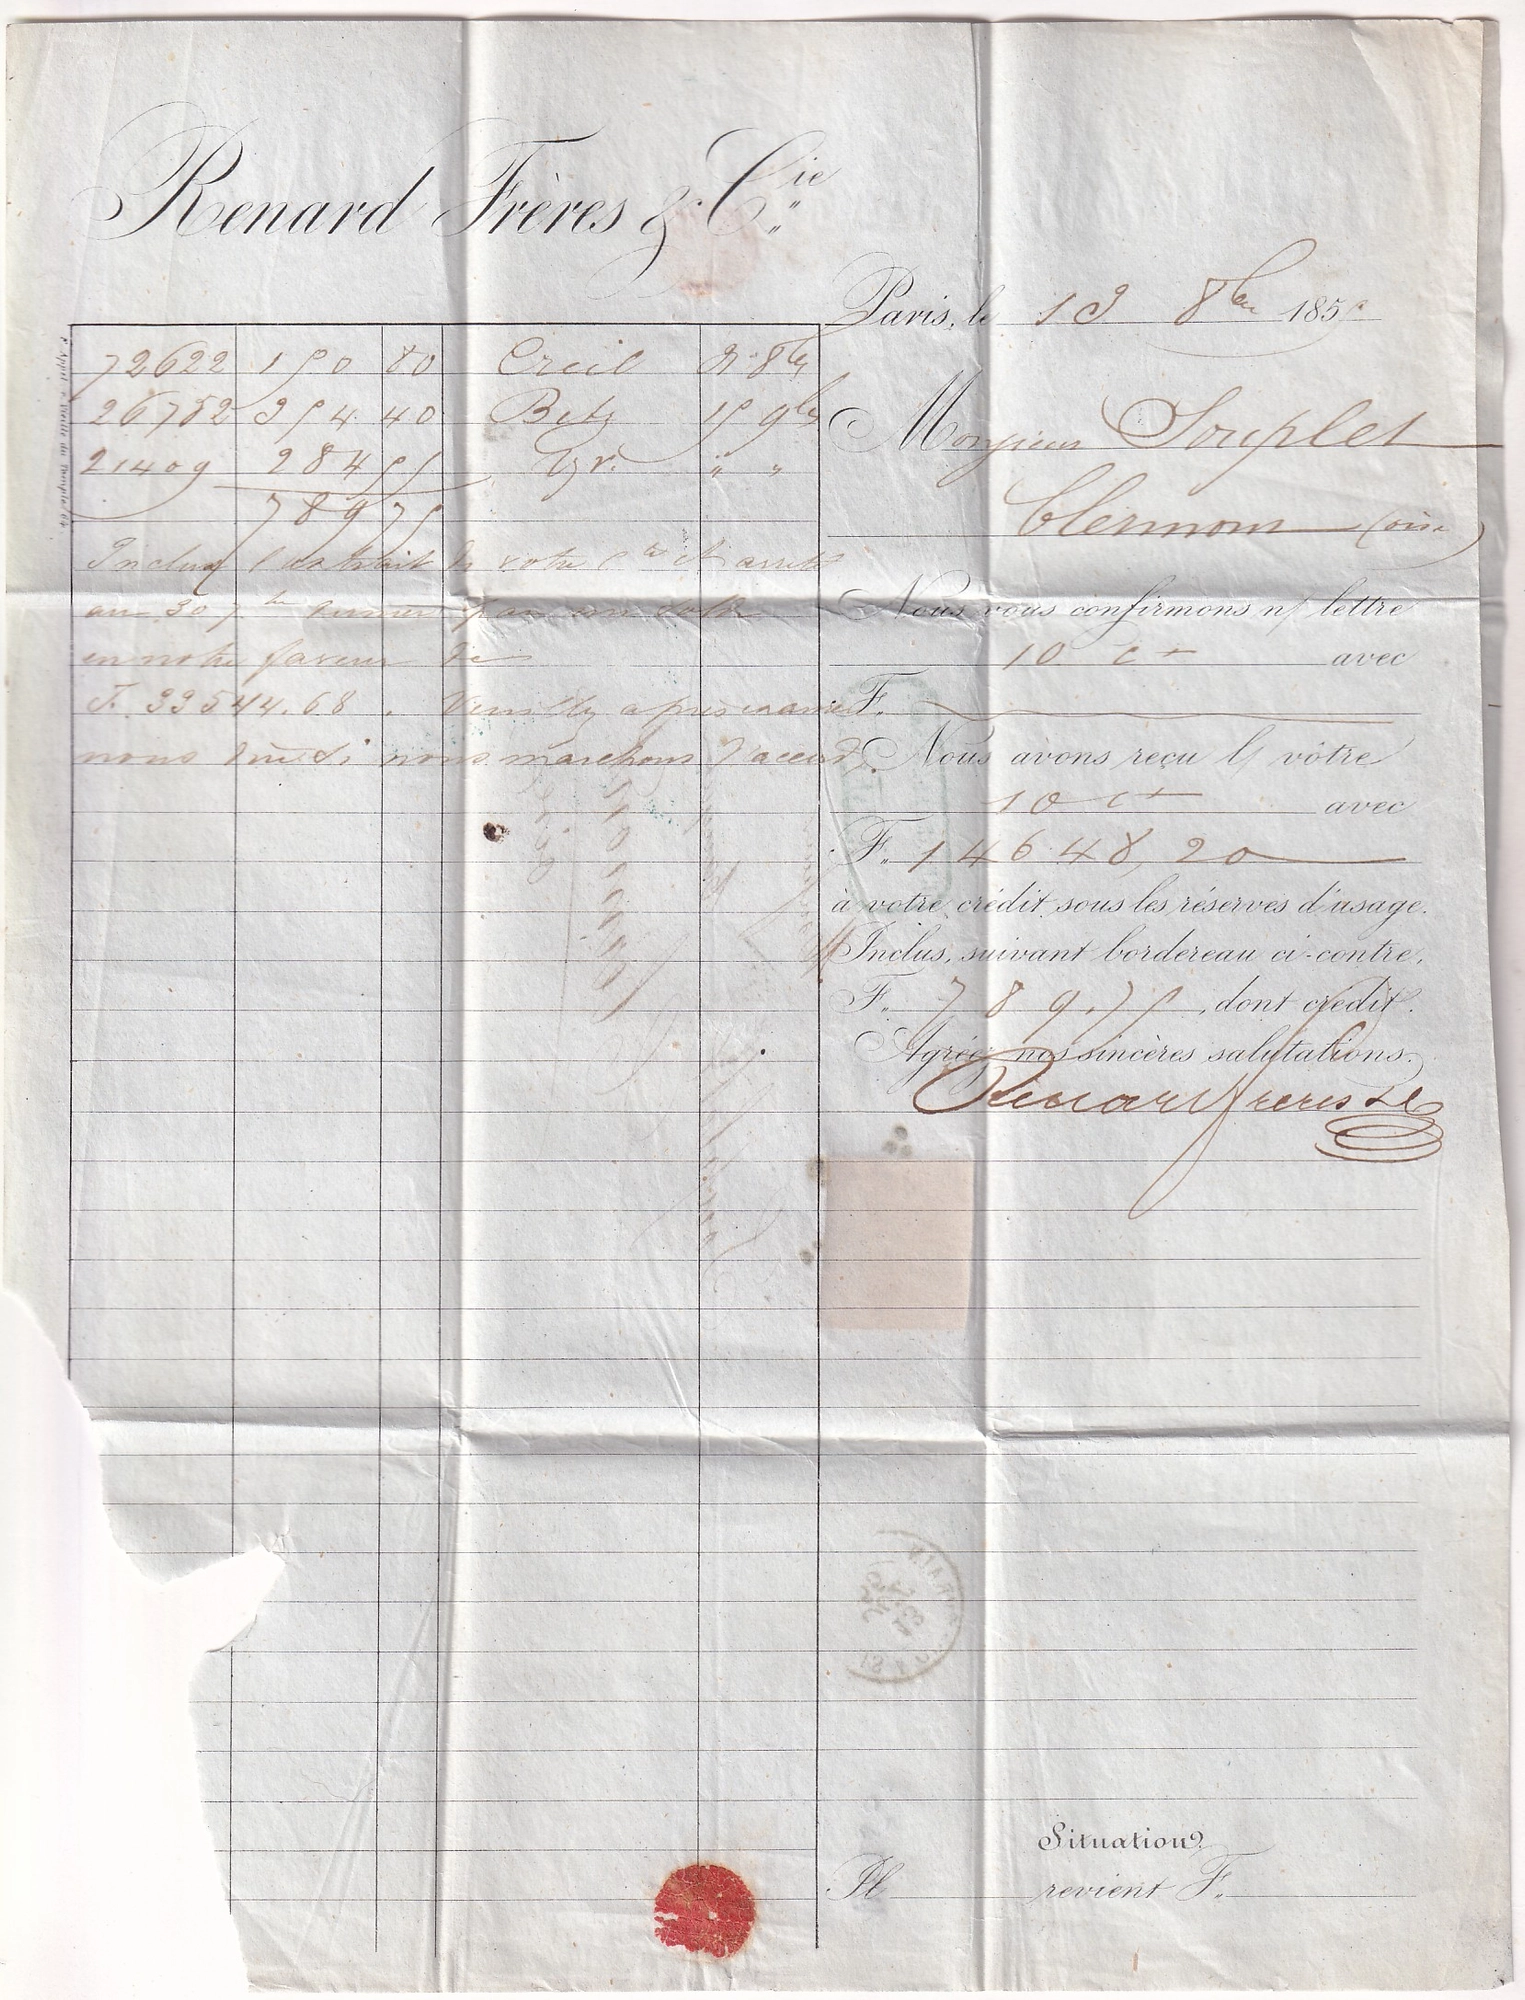 Renard Frères & Cie
Paris, le 13 8bre 185
72622 150 80 Creil 31 8bre
26752 354 40 Betz 15 9bre
21409 284 55 " "
789 75
Inclus l'extrait de votre cte ct arrêté
au 30 7bre dernier par un solde
en notre faveur de
F. 33544.68. Veuillez après examen
nous dire si nous marchons d'accord.
Monsieur Souplet
Clermont (oise)
Nous vous confirmons n/ lettre
10 ct avec
F.
Nous avons reçu l/ vôtre
10 ct avec
F. 14648,20
à votre crédit sous les réserves d'usage.
Inclus, suivant bordereau ci-contre,
F. 789.75, dont crédit.
Agréez nos sincères salutations.
Renard freres & Cie
Situation
Pl revient F.